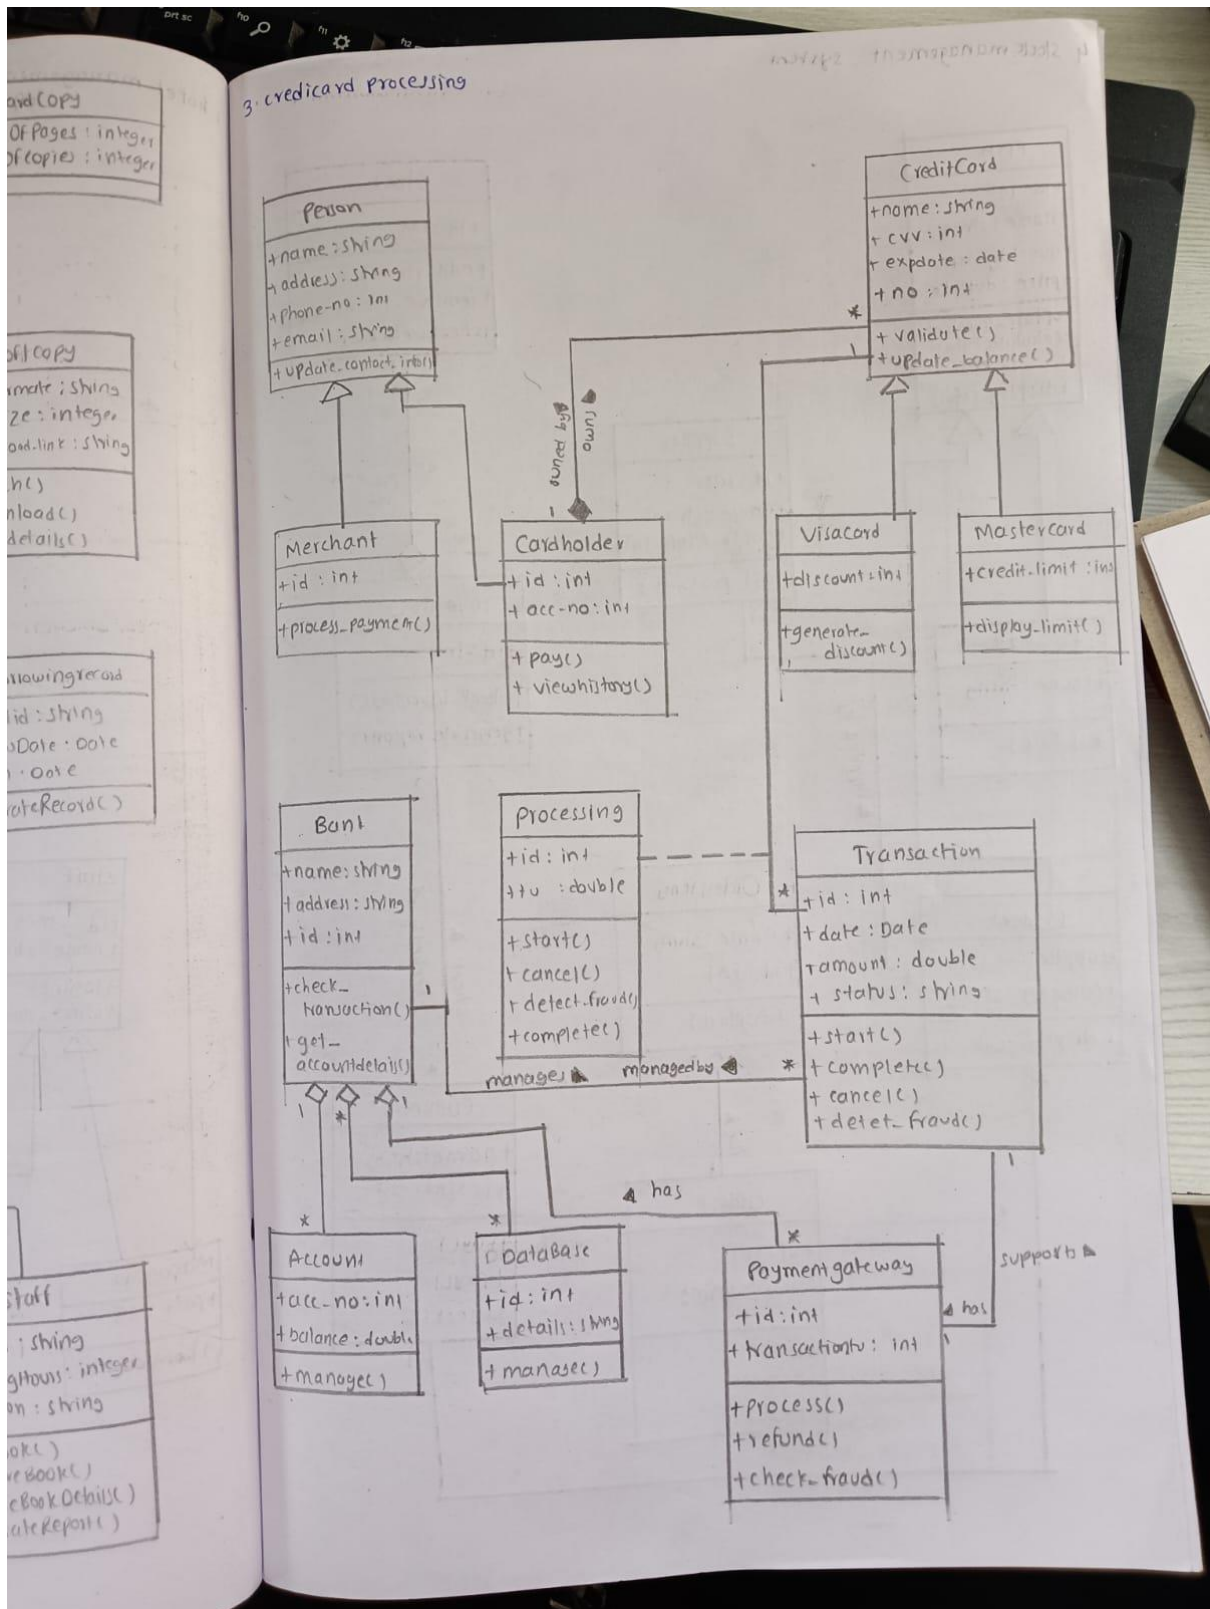 prt sc
ho
f11
f12
3. credicard processing
4 stock management system
ard Copy
Of Pages : integer
of copies : integer
oft copy
rmate : string
ze : integer
oad-link : string
h()
nload()
details()
llowing record
id : string
Date : Date
: Date
ateRecord()
staff
: string
gHours : integer
on : string
ook()
eBook()
eBookDetails()
ateReport()
Person
+name : string
+address : string
+phone-no : int
+email : string
+update_contact_info()
CreditCard
+name : string
+ cvv : int
+ expdate : date
+ no : int
+ validate()
+update_balance()
*
1
owns
owned by
1
Merchant
+id : int
+process_payment()
Cardholder
+id : int
+ acc-no : int
+ pay()
+ viewhistory()
Visacard
+discount : int
+generate_
discount()
Mastercard
+credit-limit : int
+display_limit()
Bank
+name : string
+address : string
+id : int
+check_
transaction()
+get_
accountdetails()
Processing
+id : int
: double
+start()
+cancel()
+ detect-fraud()
+complete()
Transaction
*
+id : int
+date : Date
+amount : double
+ status : string
+start()
+ complete()
+ cancel()
+ detet_fraud()
1
manages
managedby
*
1
*
1
has
1
*
*
*
Account
+acc-no : int
+balance : double
+manage()
DataBase
+id : int
+details : string
+manage()
Paymentgateway
+id : int
: int
+process()
+refund()
+check_fraud()
supports
has
1